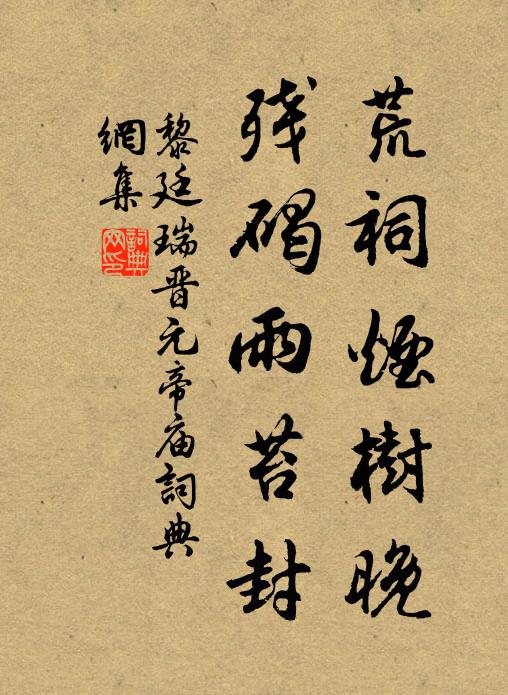 荒祠煙樹晚
残碣雨苔封
黎廷瑞晋元帝庙詞典
網集
詞典网印